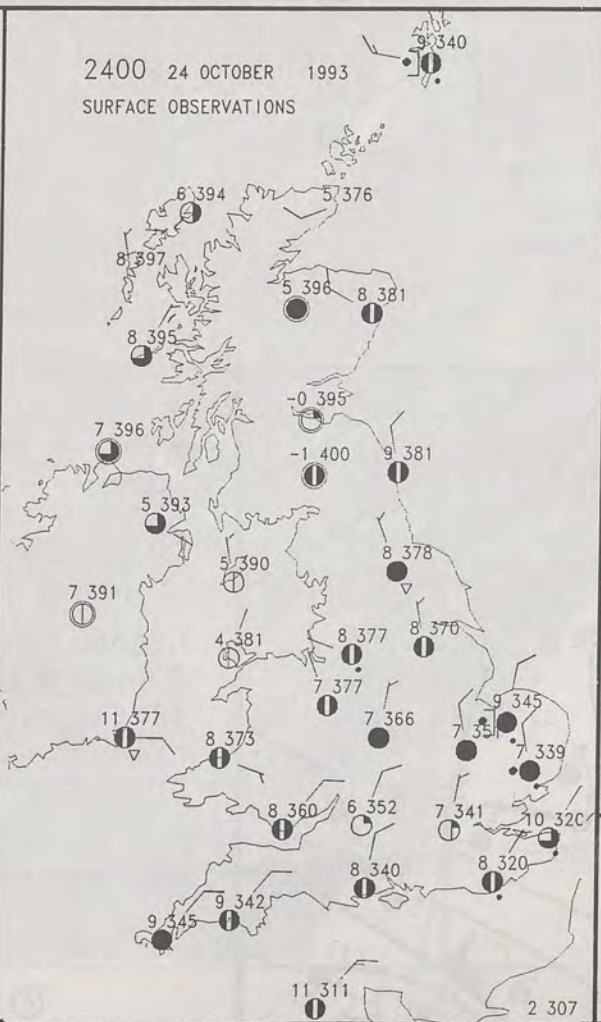 9 340
2400 24 OCTOBER 1993
SURFACE OBSERVATIONS
6 394
5 376
8 397
5 396
8 381
8 395
-0 395
7 396
-1 400
9 381
5 393
5 390
8 378
7 391
4 381
8 377
8 370
7 377
9 345
11 377
8 373
7 366
7 35
7 339
8 360
6 352
7 341
10 320
8 340
8 320
9 342
9 345
11 311
2 307